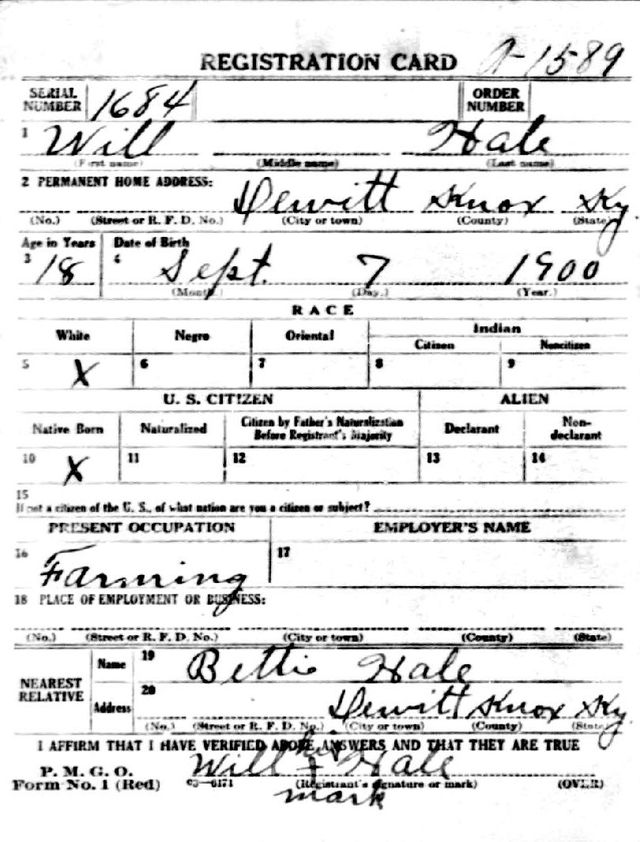 REGISTRATION CARD A-1589
SERIAL NUMBER 1684 ORDER NUMBER
1 Will Hale
(First name) (Middle name) (Last name)
2 PERMANENT HOME ADDRESS:
Dewitt Knox Ky.
(No.) (Street or R. F. D. No.) (City or town) (County) (State)
Age in Years Date of Birth
3 18 4 Sept. 7 1900
(Month.) (Day.) (Year.)
RACE
White Negro Oriental Indian
Citizen Noncitizen
5 X 6 7 8 9
U. S. CITIZEN ALIEN
Native Born Naturalized Citizen by Father's Naturalization Before Registrant's Majority Declarant Non-declarant
10 X 11 12 13 14
15
If not a citizen of the U. S., of what nation are you a citizen or subject?
PRESENT OCCUPATION EMPLOYER'S NAME
16 Farming 17
18 PLACE OF EMPLOYMENT OR BUSINESS:
(No.) (Street or R. F. D. No.) (City or town) (County) (State)
NEAREST RELATIVE Name 19 Bettie Hale
Address 20 Dewitt Knox Ky.
(No.) (Street or R. F. D. No.) (City or town) (County) (State)
I AFFIRM THAT I HAVE VERIFIED ABOVE ANSWERS AND THAT THEY ARE TRUE
his
P. M. G. O. Will X Hale
Form No. 1 (Red) 03—6171 (Registrant's signature or mark) (OVER)
mark